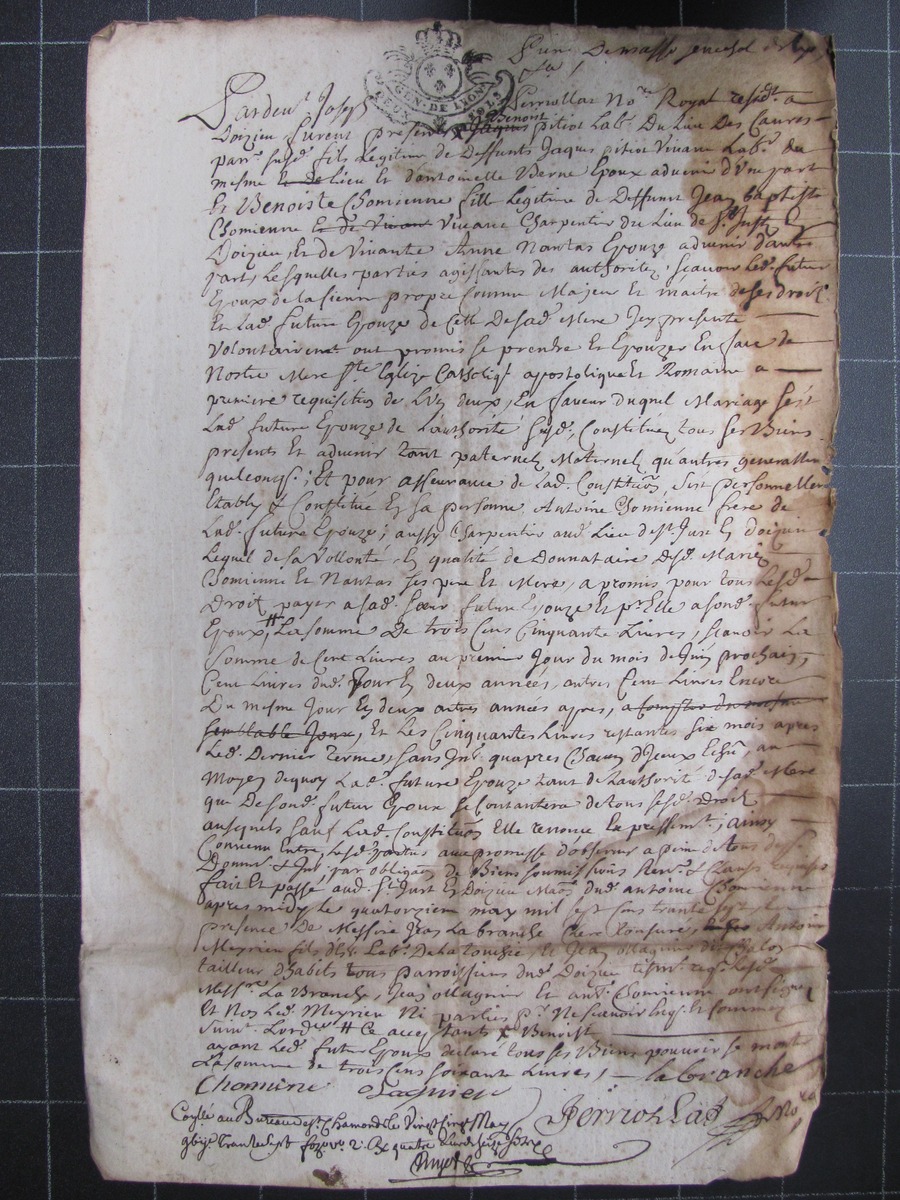 GEN. DE LION
DEUX SOLS
Pardevt Joseph Perriollat Nore Royal residt a
Doizieu furent presens Benoit Jaques pitiot Labr Du Lieu Des Cauves
parr susd. fils Legitime de Deffunts Jaques pitiot vivant Labr du
mesme Lieu Et d'antoinette Verne Epoux advenir d'une part
Et Benoiste Chomienne fille Legitime de Deffunt Jean baptiste
Chomienne et de Vivant vivant Charpentier du Lieu de St Just En
Doizieu, Et de Vivante Anne Nantas Epouze advenir d'autre
part, Lesquelles parties agissantes des authoritez, scavoir Led. futur
Epoux de la sienne propre comme Majeur Et maitre de ses droits
Et Lad. future Epouze de Celle De sad. Mere Icy presente
Volontairemt ont promis se prendre Et Epouzer En face de
Nostre Mere Ste Eglize Catholiqe apostolique Et Romaine a
premiere requisition de L'un deux, En faveur duquel Mariage s'est
Lad. future Epouze de L'authorité susd. Constituée tous ses Biens
presents Et advenir tant paternels Maternels qu'autres generallem
quelconqs; Et pour asseurance de Lad. Constituõn, s'est personnellem
Etably & Constitué En sa personne Antoine Chomienne frere de
Lad. future Epouze; aussy Charpentier aud. Lieu de St Just En doizieu
Lequel de sa Vollonté En qualité de Donnataire Desd. Mariez
Chomienne Et Nantas ses pere Et Mere, a promis pour tous Lesd.
Droits payer a sad. sœur future Epouze Et pr Elle a sond. futur
Epoux # La somme De trois Cens Cinquante Livres, scavoir La
somme de Cent Livres au premier Jour du mois de Juin prochain,
Cent Livres dud. Jour En deux années, autres Cent Livres Encore
Du mesme Jour En deux autres années apres, a Compter du mesme
semblable Jour, Et Les Cinquantes Livres restantes six mois apres
Led. Dernier terme, sans Int. qu'apres Chacun d'Iceux Echu, au
Moyen dequoy Lad. future Epouze tant de L'authorité de sad. Mere
que De sond. futur Epoux se Contantera de tous sesd. Droits
ausquels sauf Lad. Constituõn Elle renonce Le pressemt; ainsy
Convenu Entre Lesd. parties avec promesse d'observer a peine de tous desp.
Domm. & Int., par obligaõn de Biens soumissions Renons & Clauses
fait Et passé aud. St Just En Doizieu Maõn dud. antoine Chomienne
apres midy le quatorzieme may mil sept Cens trante sept En
presence De Messire Jean La branche Clerc tonsuré, Antoine
Meyrieu fils d'Est. Labr. De la touchie, Et Jean ollagnier
tailleur d'habits tous parroissiens dud. Doizieu temt. reqs. Lesd.
Messr. La Branche, Jean ollagnier Et ant. Chomienne ont signé
Et Non Led. Meyrieu Ni parties pr. Ne scavoir Enqs. Et sommez
suivt. L'ordce # Ce acceptants x Benoist
ayant Led. futur Epoux declaré tous ses Biens pouvoir se monter
La somme de trois Cens soixante Livres, La branche
Chomienne
Perriollat No re
Conllé au Bureau de St Chamond Le Vingt sept May